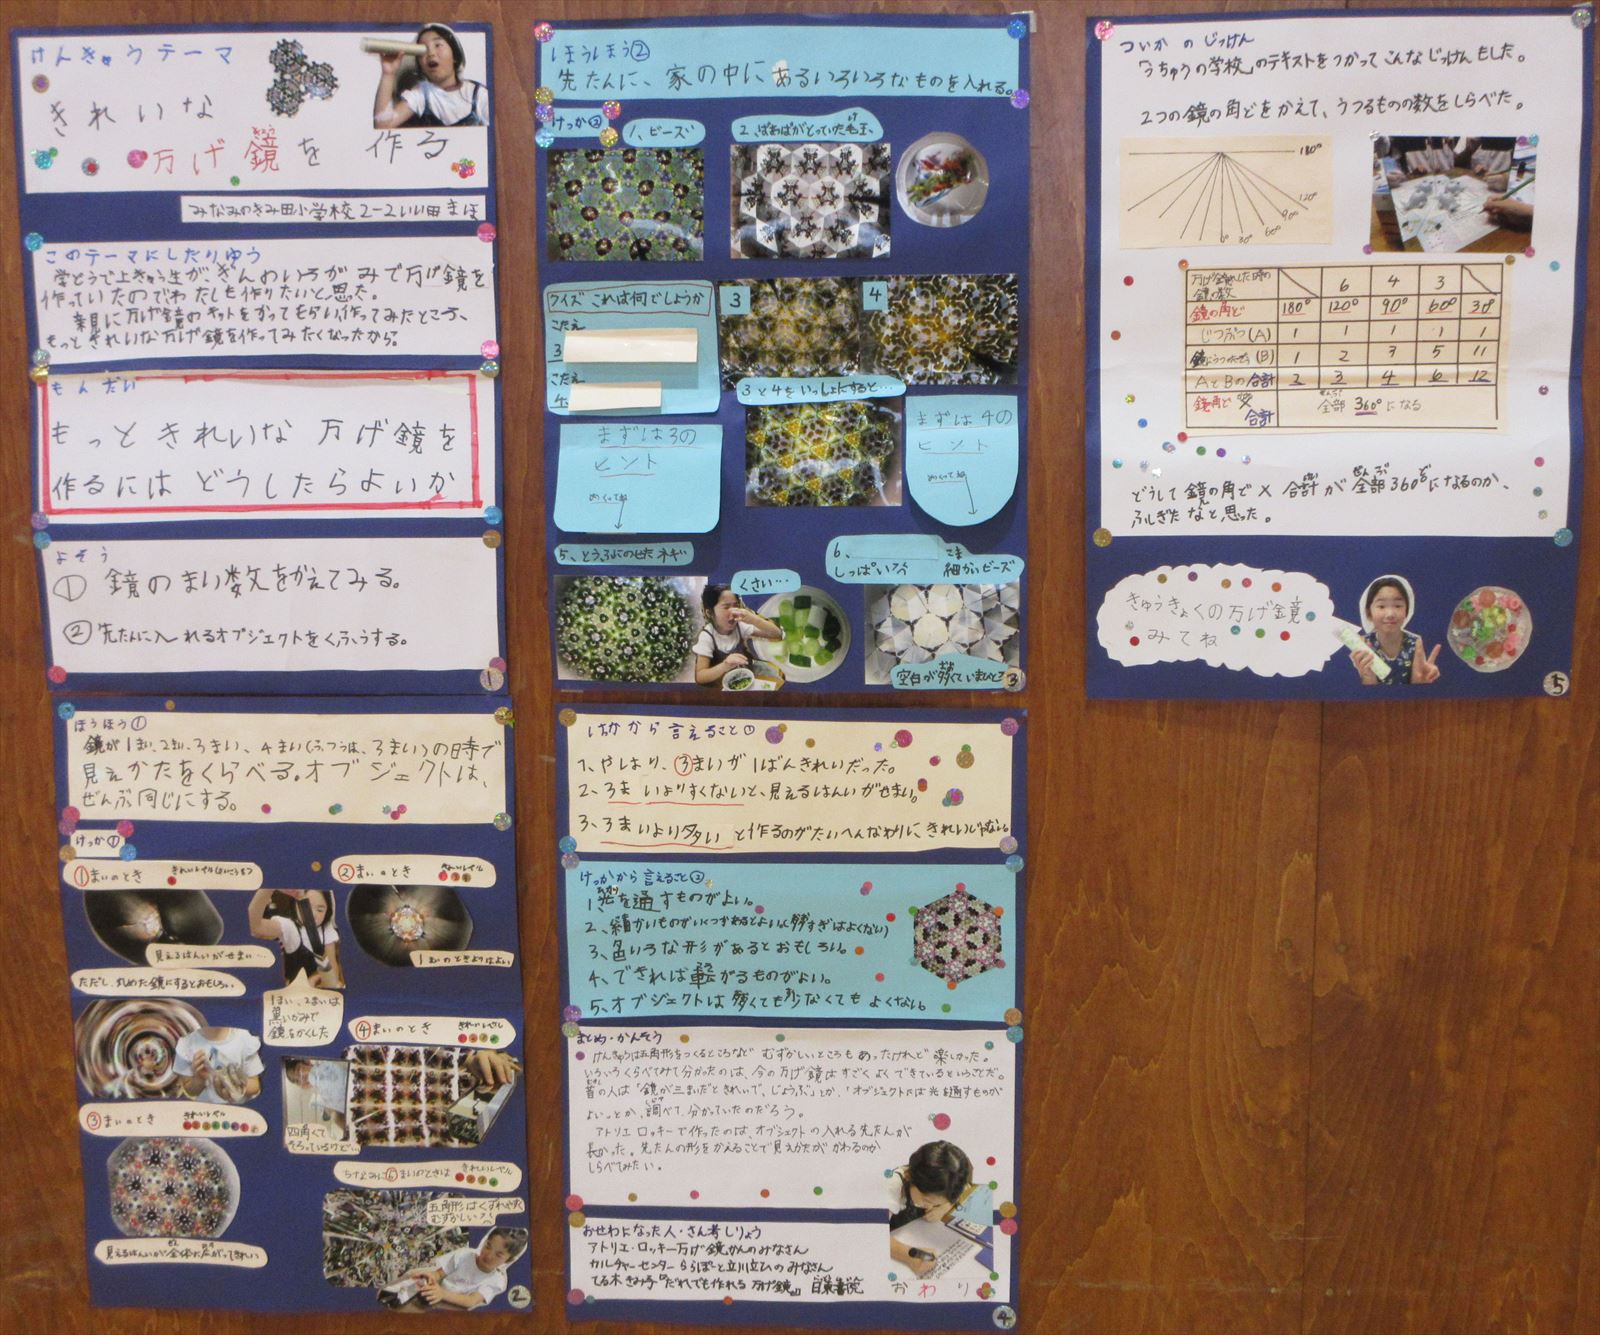 けんきゅうテーマ
きれいな
万げ鏡を作る
みなみのきみ田小学校 2-2 いい田 まほ
このテーマにしたりゆう
学どうで上きゅう生がぎんいろがみで万げ鏡を
作っていたのでわたしも作りたいと思った。
親に万げ鏡のキットをかってもらい作ってみたところ、
もっときれいな万げ鏡を作ってみたくなったから。
もんだい
もっときれいな万げ鏡を
作るにはどうしたらよいか
よそう
① 鏡のまい数をかえてみる。
② 先たんに入れるオブジェクトをくふうする。
1
ほうほう①
鏡が1まい、2まい、3まい、4まい(ふつうは、3まい)の時で
見えかたをくらべる。オブジェクトは、
ぜんぶ同じにする。
けっか①
①まいのとき
②まいのとき
きれいレベル
見えるはんいがせまい…
1まいのときよりはよい
ただし、丸めた鏡にするとおもしろい
1まい、2まいは
黒いがみで
鏡をかくした
④まいのとき
きれいレベル
③まいのとき
きれいレベル
四角くて
そろっているけど…
ちなみに⑤まいのときは
きれいレベル
五角形はくずれやすく
むずかしい
見えるはんいが全体に広がってきれい
2
ほうほう②
先たんに、家の中にあるいろいろなものを入れる。
けっか②
1、ビーズ
2、ばあばがとっていた毛玉
クイズ これは何でしょうか
こたえ
3
こたえ
4
3
4
3と4をいっしょにすると…
まずは3の
ヒント
めくってね
まずは4の
ヒント
めくってね
5、とうふにのせたネギ
くさい…
6、
しっぱい
細かいビーズ
空白が多くていまひとつ
3
けっかから言えること①
1、やはり、③まいが1ばんきれいだった。
2、3まいよりすくないと、見えるはんいがせまい。
3、3まいより多いと作るのがたいへんなわりにきれいじゃない。
けっかから言えること②
1、光を通すものがよい。
2、細かいものがいくつかあるとよい(多すぎはよくない)
3、色いろな形があるとおもしろい。
4、できれば転がるものがよい。
5、オブジェクトは多くても少なくてもよくない。
まとめ・かんそう
けんきゅうは五角形をつくるところなどむずかしいところもあったけれど楽しかった。
いろいろくらべてみて分かったのは、今の万げ鏡はすごくよくできているということだ。
昔の人は「鏡が三まいだときれいで、じょうぶ」とか、「オブジェクトは光を通すものが
よい」とか、調べて、分かっていたのだろう。
アトリエロッキーで作ったのは、オブジェクトの入れる先たんが
長かった。先たんの形をかえることで見えかたがかわるのか
しらべてみたい。
おせわになった人・さん考しりょう
アトリエ・ロッキー万げ鏡かんのみなさん
カルチャーセンターららぽーと立川立ひのみなさん
てる木きみ子『だれでも作れる万げ鏡』日東書院
おわり
4
ついかのじっけん
「うちゅうの学校」のテキストをつかってこんなじっけんもした。
2つの鏡の角どをかえて、うつるものの数をしらべた。
180°
120°
90°
60°
30°
0°
万げ鏡にした時の鏡の数 6 4 3
鏡の角ど 180° 120° 90° 60° 30°
じつぶつ(A) 1 1 1 1 1
(B) 1 2 3 5 11
AとBの合計 2 3 4 6 12
鏡角ど×合計 全部360°になる
どうして鏡の角ど×合計が全部360°になるのか、
ふしぎだなと思った。
きゅうきょくの万げ鏡
みてね
5